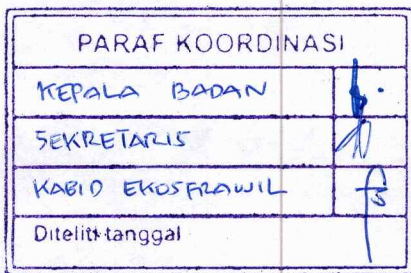 PARAF KOORDINASI
KEPALA BADAN
SEKRETARIS
KABID EKOSFRAWIL
Diteliti tanggal